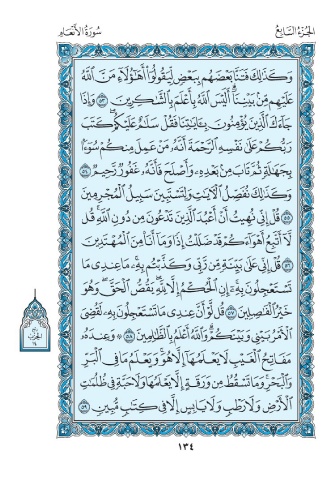 الجزء السابع
سورة الأنعام
وَكَذَٰلِكَ فَتَنَّا بَعْضَهُم بِبَعْضٍ لِّيَقُولُوٓا۟ أَهَٰٓؤُلَآءِ مَنَّ ٱللَّهُ
عَلَيْهِم مِّنۢ بَيْنِنَآ ۗ أَلَيْسَ ٱللَّهُ بِأَعْلَمَ بِٱلشَّٰكِرِينَ ٥٣ وَإِذَا
جَآءَكَ ٱلَّذِينَ يُؤْمِنُونَ بِـَٔايَٰتِنَا فَقُلْ سَلَٰمٌ عَلَيْكُمْ ۖ كَتَبَ
رَبُّكُمْ عَلَىٰ نَفْسِهِ ٱلرَّحْمَةَ ۖ أَنَّهُۥ مَنْ عَمِلَ مِنكُمْ سُوٓءًۢا
بِجَهَٰلَةٍ ثُمَّ تَابَ مِنۢ بَعْدِهِۦ وَأَصْلَحَ فَأَنَّهُۥ غَفُورٌ رَّحِيمٌ ٥٤
وَكَذَٰلِكَ نُفَصِّلُ ٱلْءَايَٰتِ وَلِتَسْتَبِينَ سَبِيلُ ٱلْمُجْرِمِينَ
٥٥ قُلْ إِنِّى نُهِيتُ أَنْ أَعْبُدَ ٱلَّذِينَ تَدْعُونَ مِن دُونِ ٱللَّهِ ۚ قُل
لَّآ أَتَّبِعُ أَهْوَآءَكُمْ ۙ قَدْ ضَلَلْتُ إِذًا وَمَآ أَنَا۠ مِنَ ٱلْمُهْتَدِينَ
٥٦ قُلْ إِنِّى عَلَىٰ بَيِّنَةٍ مِّن رَّبِّى وَكَذَّبْتُم بِهِۦ ۚ مَا عِندِى مَا
تَسْتَعْجِلُونَ بِهِۦٓ ۚ إِنِ ٱلْحُكْمُ إِلَّا لِلَّهِ ۖ يَقُصُّ ٱلْحَقَّ ۖ وَهُوَ
خَيْرُ ٱلْفَٰصِلِينَ ٥٧ قُل لَّوْ أَنَّ عِندِى مَا تَسْتَعْجِلُونَ بِهِۦ لَقُضِىَ
ٱلْأَمْرُ بَيْنِى وَبَيْنَكُمْ ۗ وَٱللَّهُ أَعْلَمُ بِٱلظَّٰلِمِينَ ٥٨ ۞ وَعِندَهُۥ
مَفَاتِحُ ٱلْغَيْبِ لَا يَعْلَمُهَآ إِلَّا هُوَ ۚ وَيَعْلَمُ مَا فِى ٱلْبَرِّ
وَٱلْبَحْرِ ۚ وَمَا تَسْقُطُ مِن وَرَقَةٍ إِلَّا يَعْلَمُهَا وَلَا حَبَّةٍ فِى ظُلُمَٰتِ
ٱلْأَرْضِ وَلَا رَطْبٍ وَلَا يَابِسٍ إِلَّا فِى كِتَٰبٍ مُّبِينٍ ٥٩
١٣٤